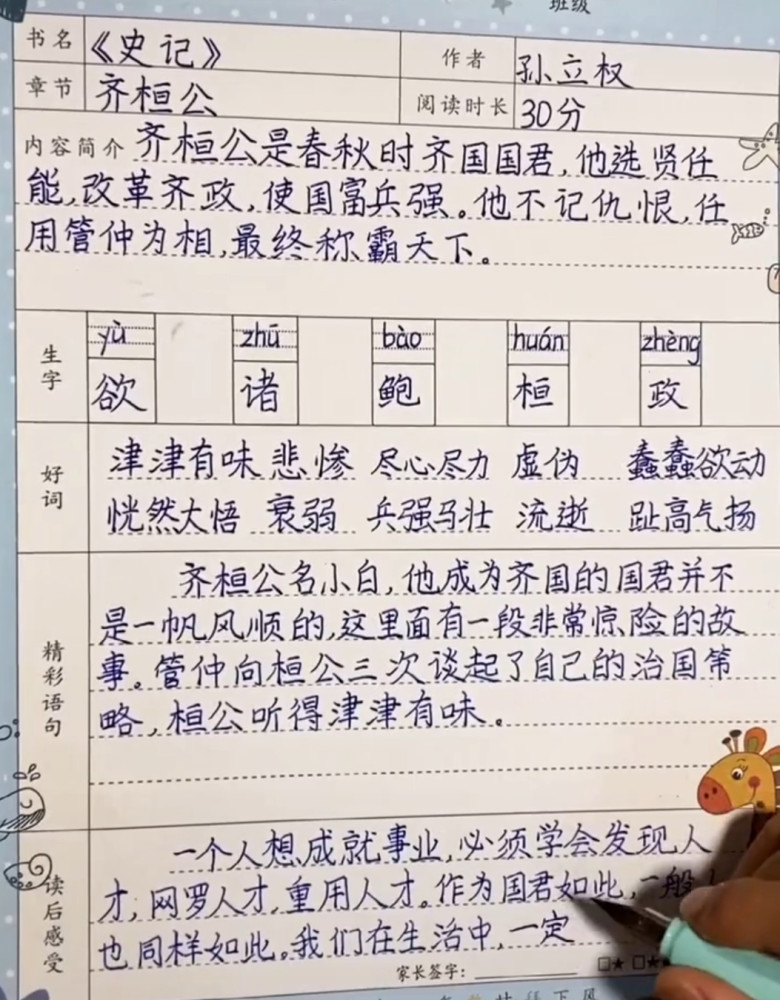 班级
书名 《史记》 作者 孙立权
章节 齐桓公 阅读时长 30分
内容简介 齐桓公是春秋时齐国国君,他选贤任
能,改革齐政,使国富兵强。他不记仇恨,任
用管仲为相,最终称霸天下。
生字
yù zhū bào huán zhèng
欲 诸 鲍 桓 政
好词
津津有味 悲惨 尽心尽力 虚伪 蠢蠢欲动
恍然大悟 衰弱 兵强马壮 流逝 趾高气扬
精彩语句
齐桓公名小白,他成为齐国的国君并不
是一帆风顺的,这里面有一段非常惊险的故
事。管仲向桓公三次谈起了自己的治国策
略,桓公听得津津有味。
读后感受
一个人想成就事业,必须学会发现人
才,网罗人才,重用人才。作为国君如此,一般
也同样如此。我们在生活中,一定
家长签字: